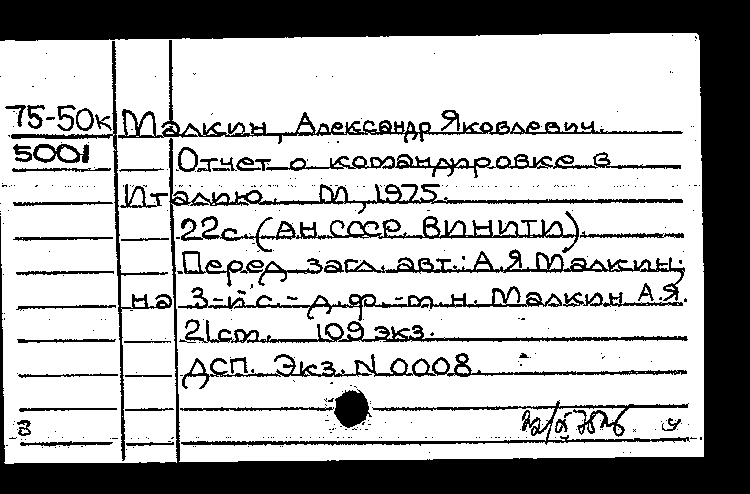 75-50к Малкин, Александр Яковлевич.
5001 Отчет о командировке в
Италию. М, 1975.
22с. (АН СССР. ВИНИТИ).
Перед загл. авт.: А.Я.Малкин;
на 3-й с.- д.ф.-м.н. Малкин А.Я.
21см. 109 экз.
ДСП. Экз. N 0008.